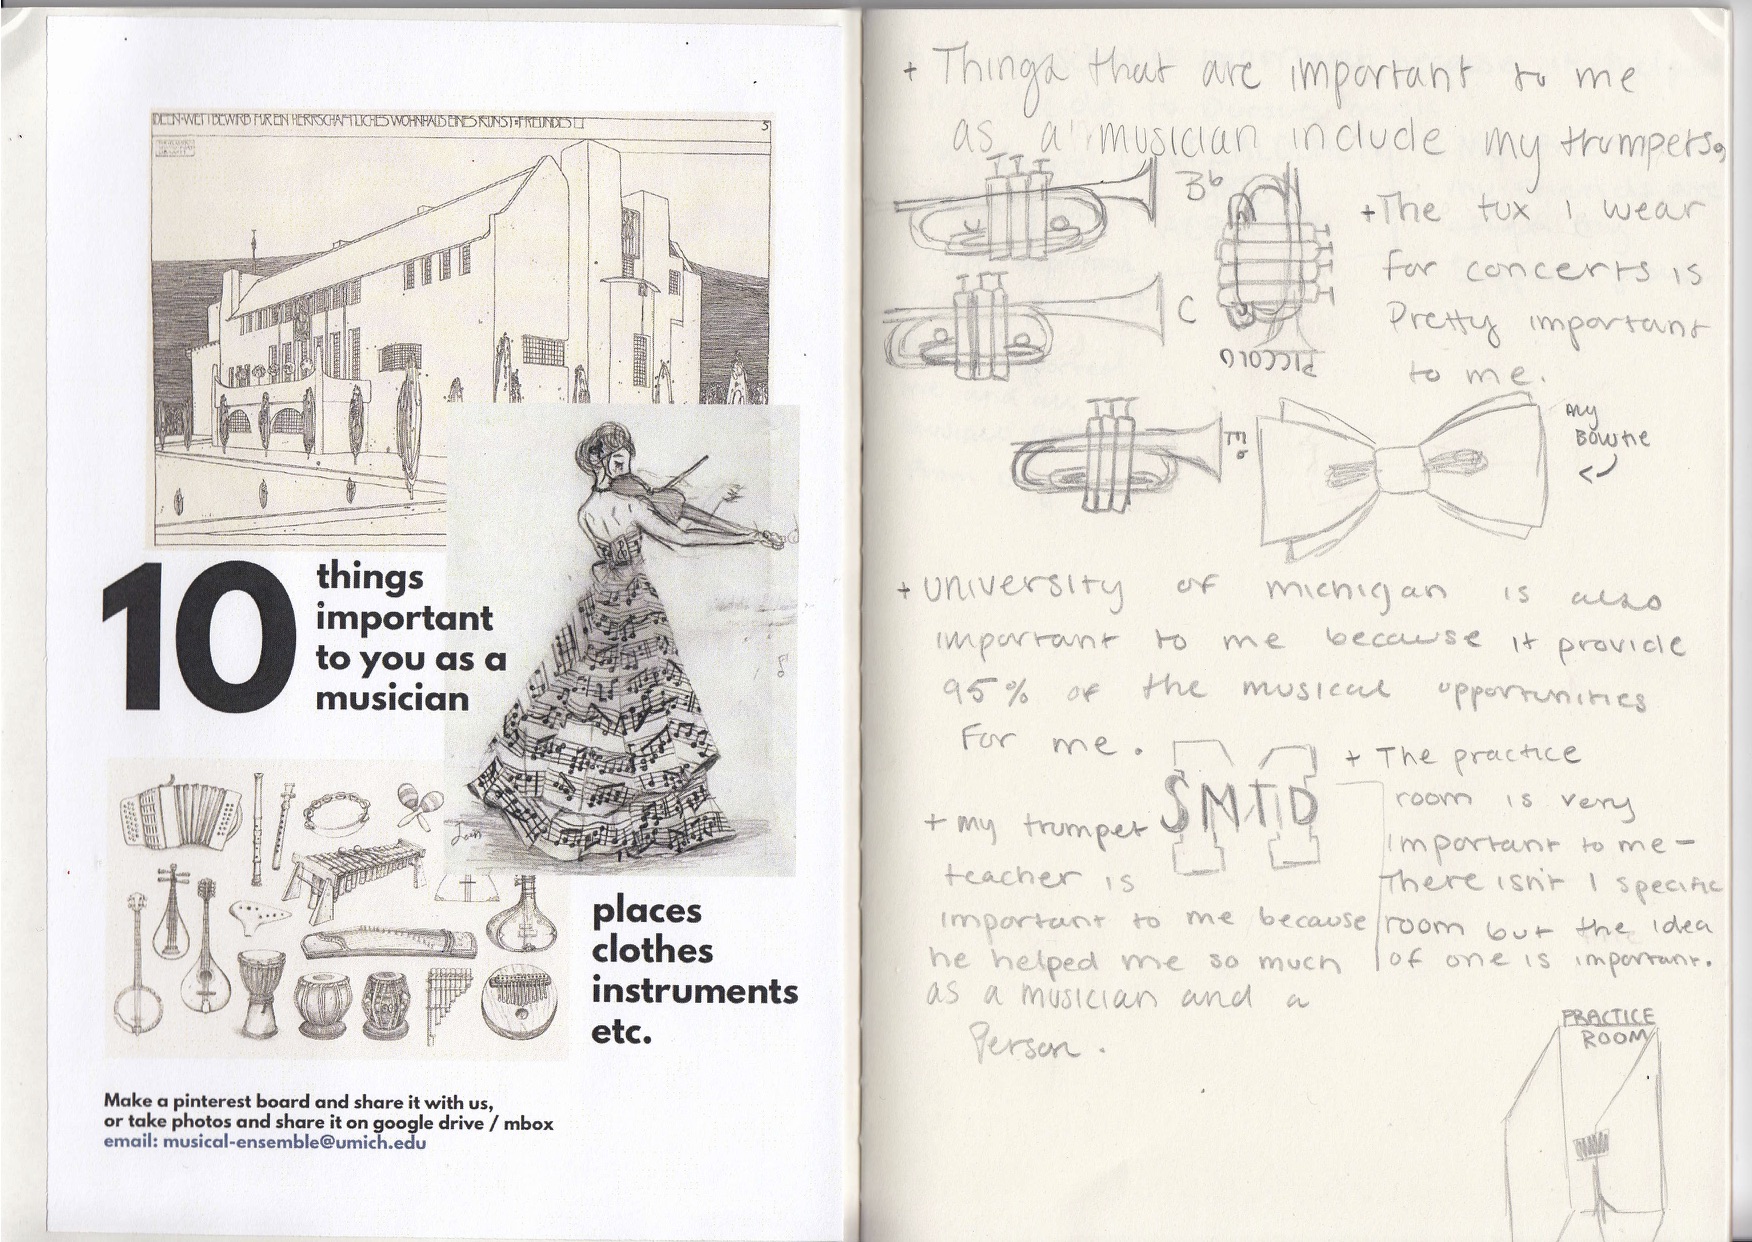 IDEEN-WETTBEWERB FÜR EIN HERRSCHAFTLICHES WOHNHAUS EINES KUNST-FREUNDES
5
10
things
important
to you as a
musician
places
clothes
instruments
etc.
Make a pinterest board and share it with us,
or take photos and share it on google drive / mbox
email: musical-ensemble@umich.edu
+ Things that are important to me
as a musician include my trumpets,
Bb
C
PICCOLO
Eb
+ The tux I wear
for concerts is
Pretty important
to me.
my
Bowtie
+ University of michigan is also
important to me because it provide
95% of the musical opportunities
For me.
SMTD
+ my trumpet
teacher is
important to me because
he helped me so much
as a musician and a
Person.
+ The practice
room is very
important to me -
There isn't 1 specific
room but the idea
of one is important.
PRACTICE
ROOM